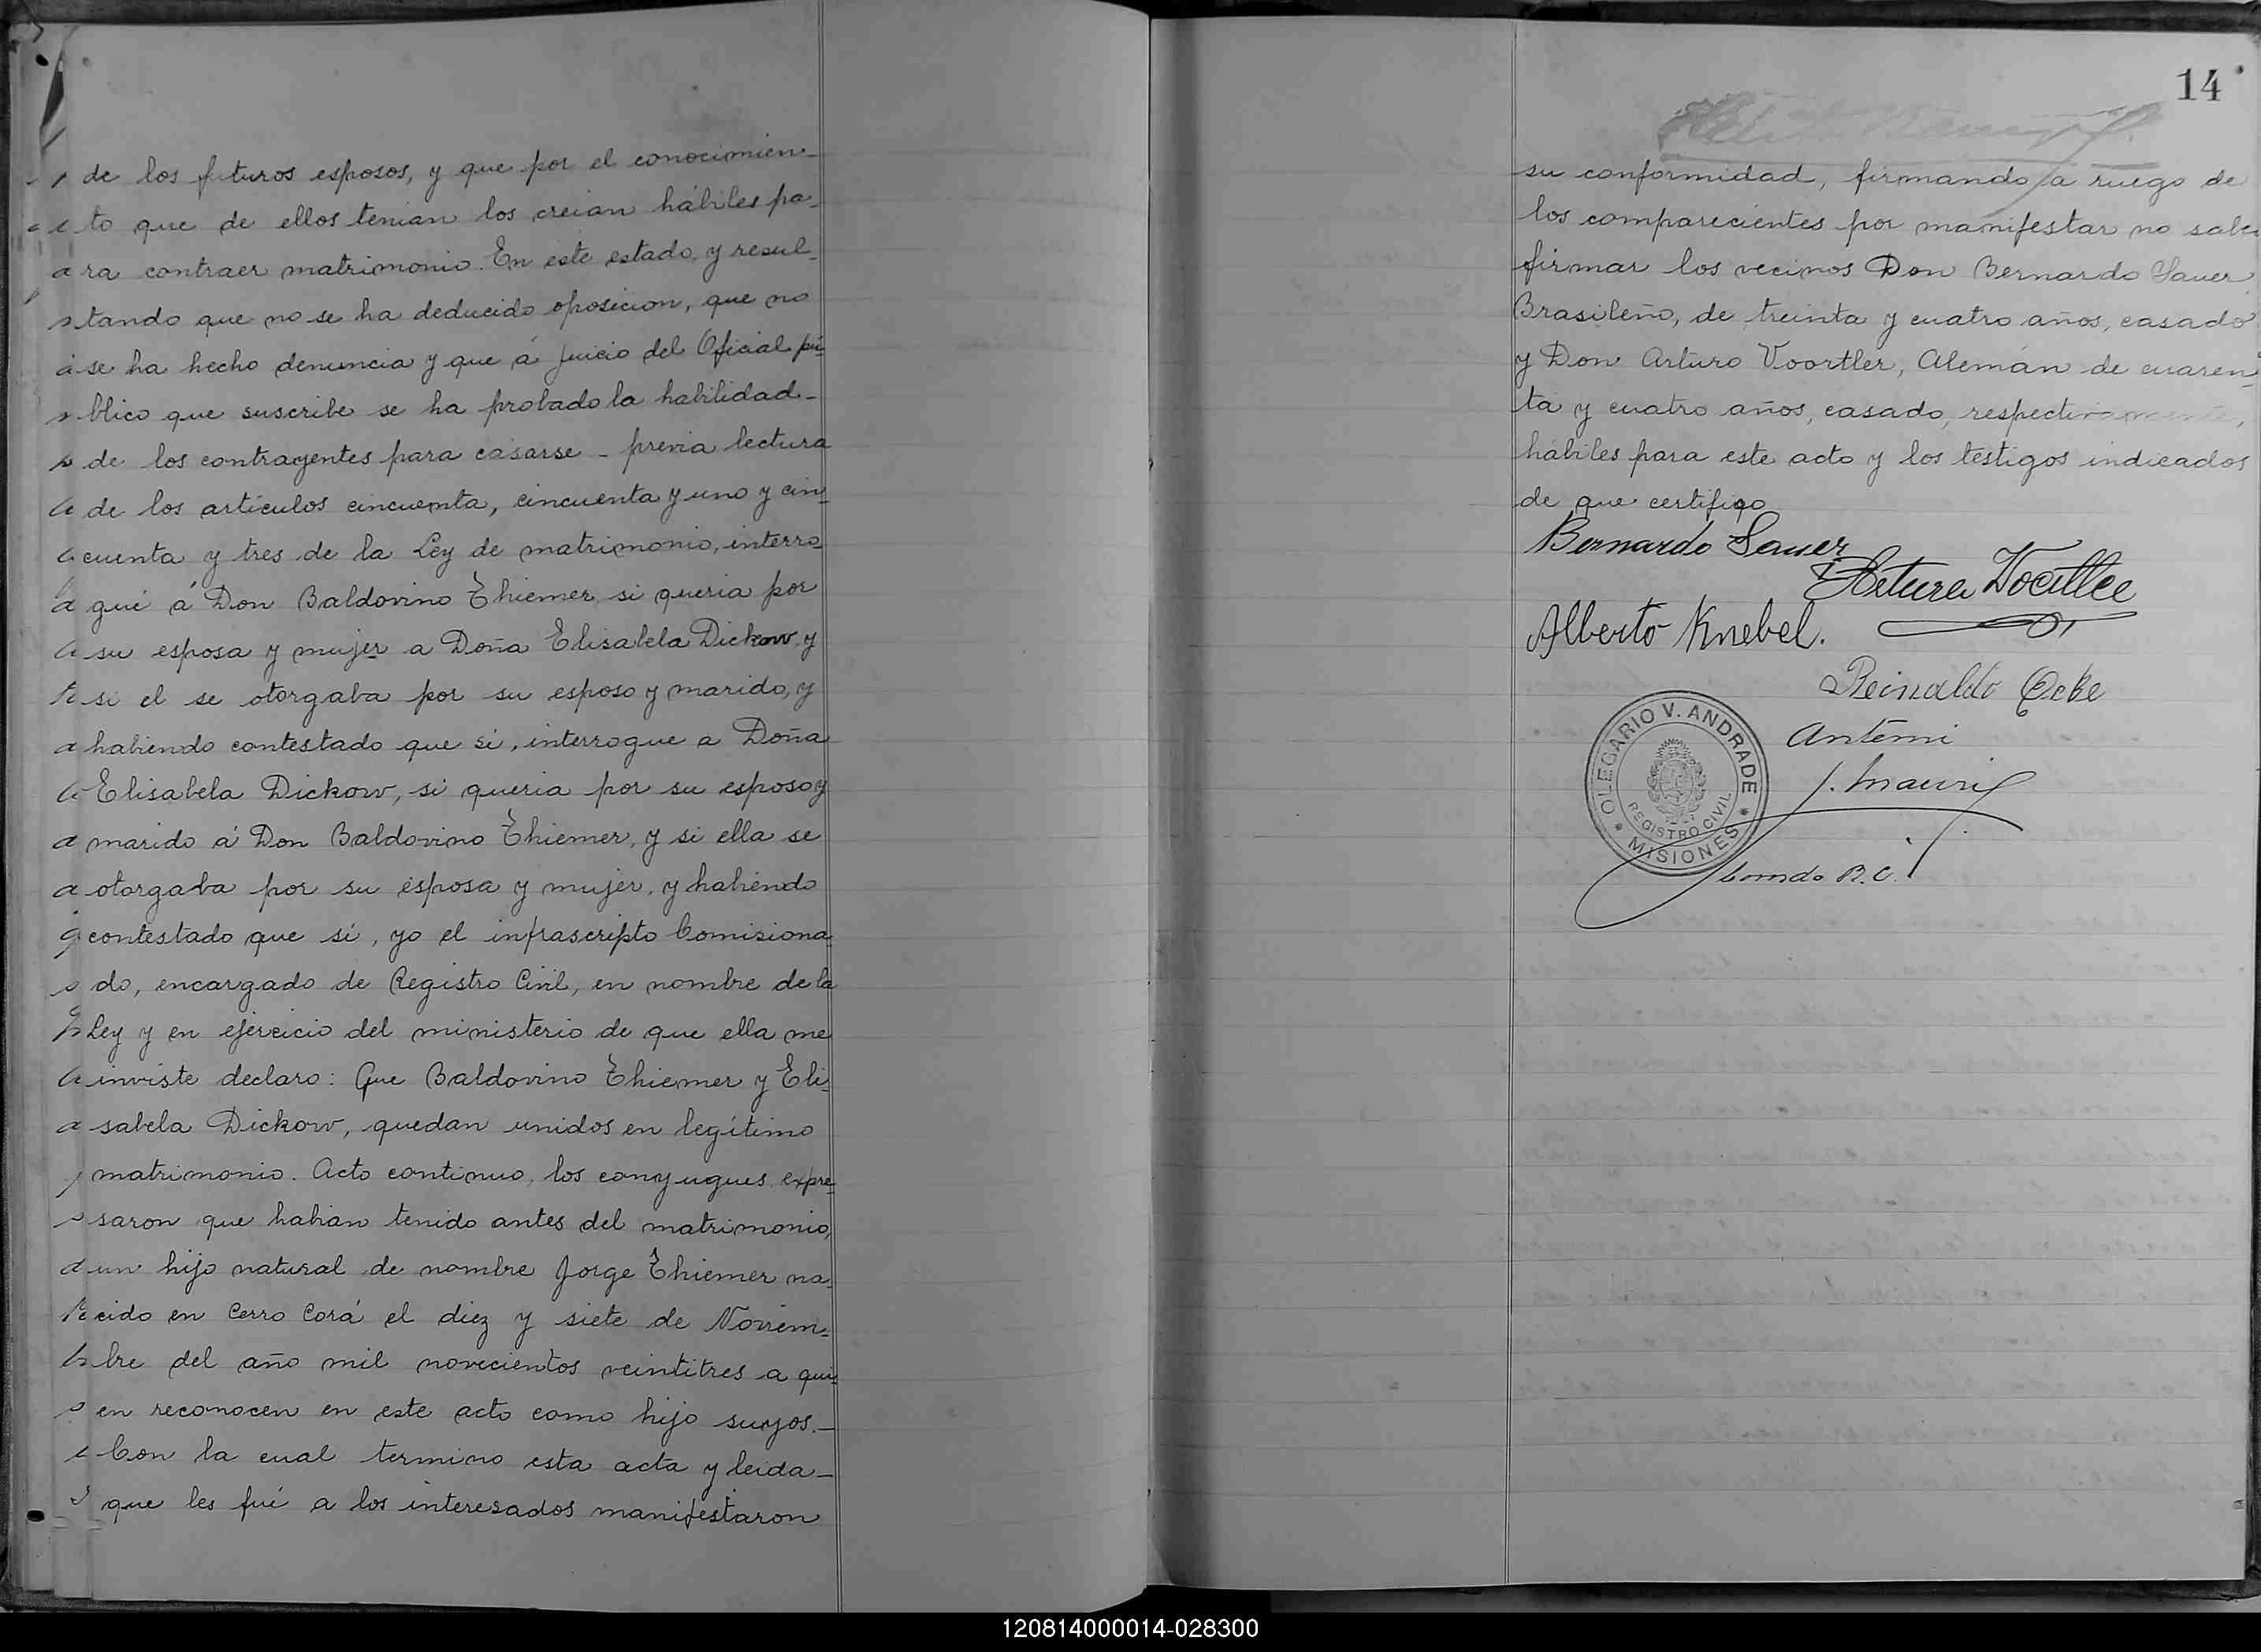 de los futuros esposos, y que por el conocimien-
to que de ellos tenian los creian hábiles pa-
ra contraer matrimonio. En este estado, y resul-
tando que no se ha deducido oposicion, que no
se ha hecho denuncia y que á juicio del Oficial pú-
blico que suscribe se ha probado la habilidad-
de los contrayentes para casarse - previa lectura
de los artículos cincuenta, cincuenta y uno y cin-
cuenta y tres de la Ley de matrimonio, interro-
gué á Don Baldovino Thiemer, si queria por
su esposa y mujer a Doña Elisabela Dickow, y
si el se otorgaba por su esposo y marido, y
habiendo contestado que si, interrogue a Doña
Elisabela Dickow, si queria por su esposo y
marido á Don Baldovino Thiemer, y si ella se
otorgaba por su esposa y mujer, y habiendo
contestado que sí, yo el infrascripto Comisiona-
do, encargado de Registro Civil, en nombre de la
Ley y en ejercicio del ministerio de que ella me
inviste declaro: Que Baldovino Thiemer y Eli-
sabela Dickow, quedan unidos en legítimo
matrimonio. Acto continuo, los conyugues expre-
saron que habian tenido antes del matrimonio,
un hijo natural de nombre Jorge Thiemer na-
cido en Cerro Corá el diez y siete de Noviem-
bre del año mil novecientos veintitres a qui-
en reconocen en este acto como hijo suyos.-
Con la cual termino esta acta y leida-
que les fué a los interesados manifestaron
14
su conformidad, firmando a ruego de
los comparecientes por manifestar no saber
firmar los vecinos Don Bernardo Sauer
Brasileño, de treinta y cuatro años, casado
y Don Arturo Voortler, Alemán de cuaren-
ta y cuatro años, casado, respectivamente,
hábiles para este acto y los testigos indicados
de que certifico
Bernardo Sauer
Arturo
Alberto Knebel.
Reinaldo
Antemi
OLEGARIO V. ANDRADE
REGISTRO CIVIL
MISIONES
Comdo R.C.
120814000014-028300